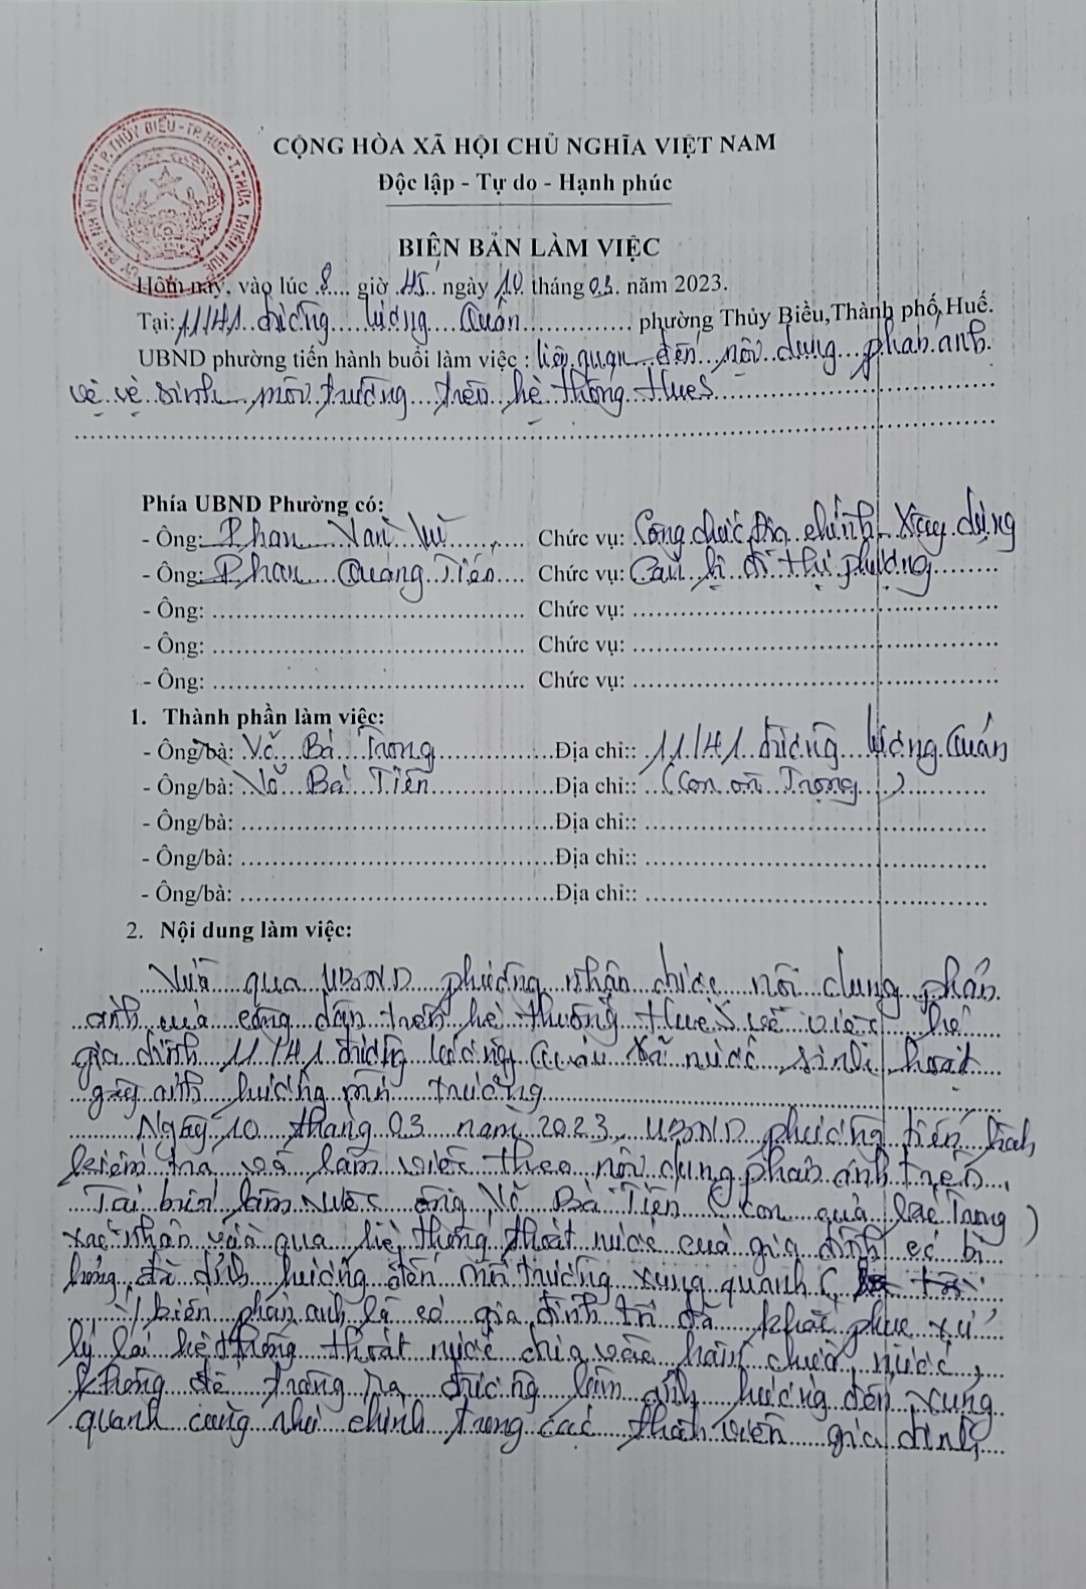 ỦY BAN NHÂN DÂN P. THỦY BIỀU - TP. HUẾ - T. THỪA THIÊN HUẾ
CỘNG HÒA XÃ HỘI CHỦ NGHĨA VIỆT NAM
Độc lập - Tự do - Hạnh phúc
BIÊN BẢN LÀM VIỆC
Hôm nay, vào lúc 8 giờ 45 ngày 10 tháng 03 năm 2023.
Tại: 11/41 đường Lương Quán phường Thủy Biều, Thành phố Huế.
UBND phường tiến hành buổi làm việc : liên quan đến nội dung phản ánh
về vệ sinh môi trường trên hệ thống HueS
Phía UBND Phường có:
- Ông: Phan Văn Chức vụ: Công chức địa chính Xây dựng
- Ông: Phan Quang Tiến Chức vụ: Cán bộ đô thị phường
- Ông: Chức vụ:
- Ông: Chức vụ:
- Ông: Chức vụ:
1. Thành phần làm việc:
- Ông/bà: Võ Bá Trọng Địa chỉ:: 11/41 đường Lương Quán
- Ông/bà: Võ Bá Tiến Địa chỉ:: (Con ôn Trọng)
- Ông/bà: Địa chỉ::
- Ông/bà: Địa chỉ::
- Ông/bà: Địa chỉ::
2. Nội dung làm việc:
Vừa qua UBND phường nhận được nội dung phản
ánh của công dân trên hệ thống HueS về việc hộ
gia đình 11/41 đường Lương Quán xả nước sinh hoạt
gây ảnh hưởng môi trường
Ngày 10 tháng 03 năm 2023, UBND phường tiến hành
kiểm tra và làm việc theo nội dung phản ánh trên,
Tại buổi làm việc ông Võ Bá Tiến (con quả Trọng)
xác nhận vừa qua hệ thống thoát nước của gia đình có bị
hỏng, đã ảnh hưởng đến môi trường xung quanh (
ý kiến phản ánh là có gia đình tôi đã khắc phục xử
lý lại hệ thống thoát nước chảy vào hầm chứa nước,
không để tràng ra đường làm ảnh hưởng đến xung
quanh cũng như chính trong các thành viên gia đình